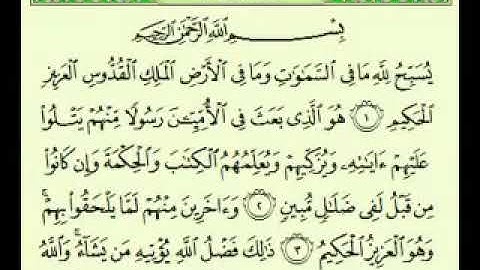 بِسْمِ ٱللَّهِ ٱلرَّحْمَٰنِ ٱلرَّحِيمِ
يُسَبِّحُ لِلَّهِ مَا فِى ٱلسَّمَٰوَٰتِ وَمَا فِى ٱلْأَرْضِ ٱلْمَلِكِ ٱلْقُدُّوسِ ٱلْعَزِيزِ
ٱلْحَكِيمِ ١ هُوَ ٱلَّذِى بَعَثَ فِى ٱلْأُمِّيِّـۧنَ رَسُولًا مِّنْهُمْ يَتْلُوا۟
عَلَيْهِمْ ءَايَٰتِهِۦ وَيُزَكِّيهِمْ وَيُعَلِّمُهُمُ ٱلْكِتَٰبَ وَٱلْحِكْمَةَ وَإِن كَانُوا۟
مِن قَبْلُ لَفِى ضَلَٰلٍ مُّبِينٍ ٢ وَءَاخَرِينَ مِنْهُمْ لَمَّا يَلْحَقُوا۟ بِهِمْ ۚ
وَهُوَ ٱلْعَزِيزُ ٱلْحَكِيمُ ٣ ذَٰلِكَ فَضْلُ ٱللَّهِ يُؤْتِيهِ مَن يَشَآءُ ۚ وَٱللَّهُ